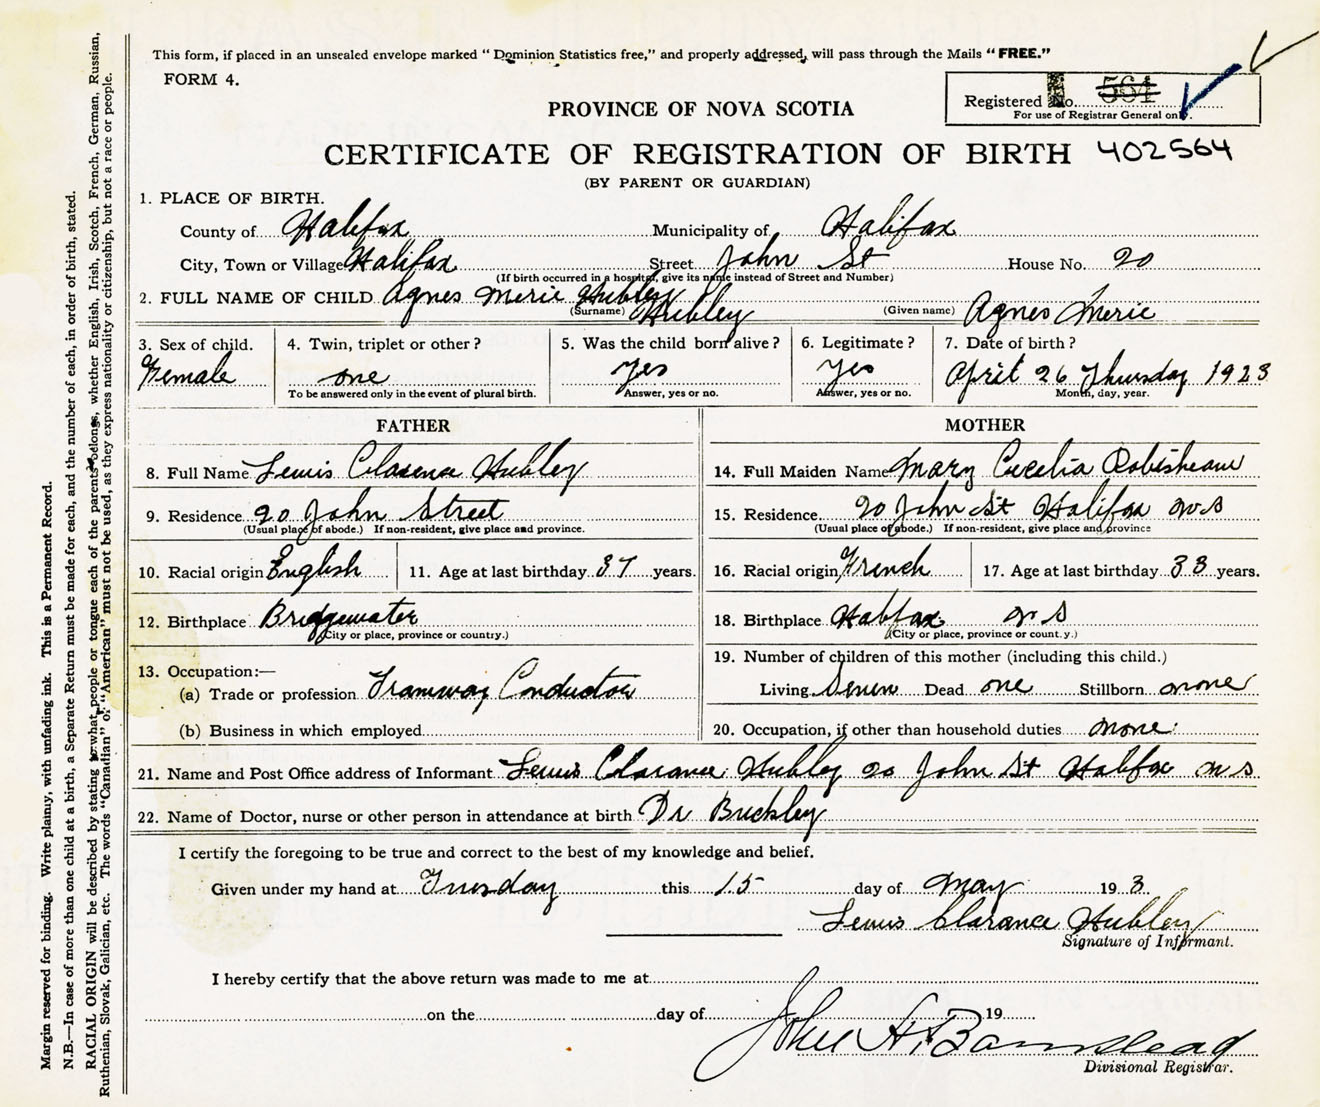 This form, if placed in an unsealed envelope marked " Dominion Statistics free," and properly addressed, will pass through the Mails "FREE."
FORM 4.
Registered No. 564
For use of Registrar General only.
PROVINCE OF NOVA SCOTIA
CERTIFICATE OF REGISTRATION OF BIRTH 402564
(BY PARENT OR GUARDIAN)
1. PLACE OF BIRTH.
County of Halifax Municipality of Halifax
City, Town or Village Halifax Street John St House No. 20
(If birth occurred in a hospital, give its name instead of Street and Number)
2. FULL NAME OF CHILD Agnes Merie Hubley
(Surname) Hubley (Given name) Agnes Merie
3. Sex of child. 4. Twin, triplet or other? 5. Was the child born alive? 6. Legitimate? 7. Date of birth?
Female one yes yes April 26 Thursday 1923
To be answered only in the event of plural birth. Answer, yes or no. Answer, yes or no. Month, day, year.
FATHER
8. Full Name Lewis Clarence Hubley
9. Residence 20 John Street
(Usual place of abode.) If non-resident, give place and province.
10. Racial origin English 11. Age at last birthday 37 years.
12. Birthplace Bridgewater
(City or place, province or country.)
13. Occupation:—
(a) Trade or profession Tramway Conductor
(b) Business in which employed
MOTHER
14. Full Maiden Name Mary Cecelia Robisheau
15. Residence 20 John St Halifax N S
(Usual place of abode.) If non-resident, give place and province
16. Racial origin French 17. Age at last birthday 33 years.
18. Birthplace Halifax N S
(City or place, province or count.y.)
19. Number of children of this mother (including this child.)
Living Seven Dead one Stillborn none
20. Occupation, if other than household duties none
21. Name and Post Office address of Informant Lewis Clarance Hubley 20 John St Halifax N S
22. Name of Doctor, nurse or other person in attendance at birth Dr Buckley
I certify the foregoing to be true and correct to the best of my knowledge and belief.
Given under my hand at Tuesday this 15 day of May 19 3
Lewis Clarance Hubley
Signature of Informant.
I hereby certify that the above return was made to me at
on the day of 19
John H. Barnstead
Divisional Registrar.
Margin reserved for binding. Write plainly, with unfading ink. This is a Permanent Record.
N.B.—In case of more than one child at a birth, a Separate Return must be made for each, and the number of each, in order of birth, stated.
RACIAL ORIGIN will be described by stating to what people or tongue each of the parents belongs, whether English, Irish, Scotch, French, German, Russian,
Ruthenian, Slovak, Galician, etc. The words "Canadian" or "American" must not be used, as they express nationality or citizenship, but not a race or people.